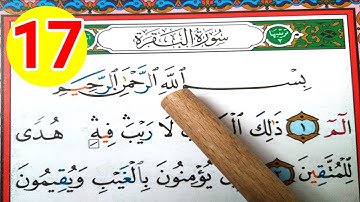 17
سُورَةُ الْبَقَرَةِ
بِسْمِ اللَّهِ الرَّحْمَٰنِ الرَّحِيمِ
الٓمٓ ١ ذَٰلِكَ لَا رَيْبَ فِيهِ هُدًى
لِّلْمُتَّقِينَ ٢ يُؤْمِنُونَ بِالْغَيْبِ وَيُقِيمُونَ